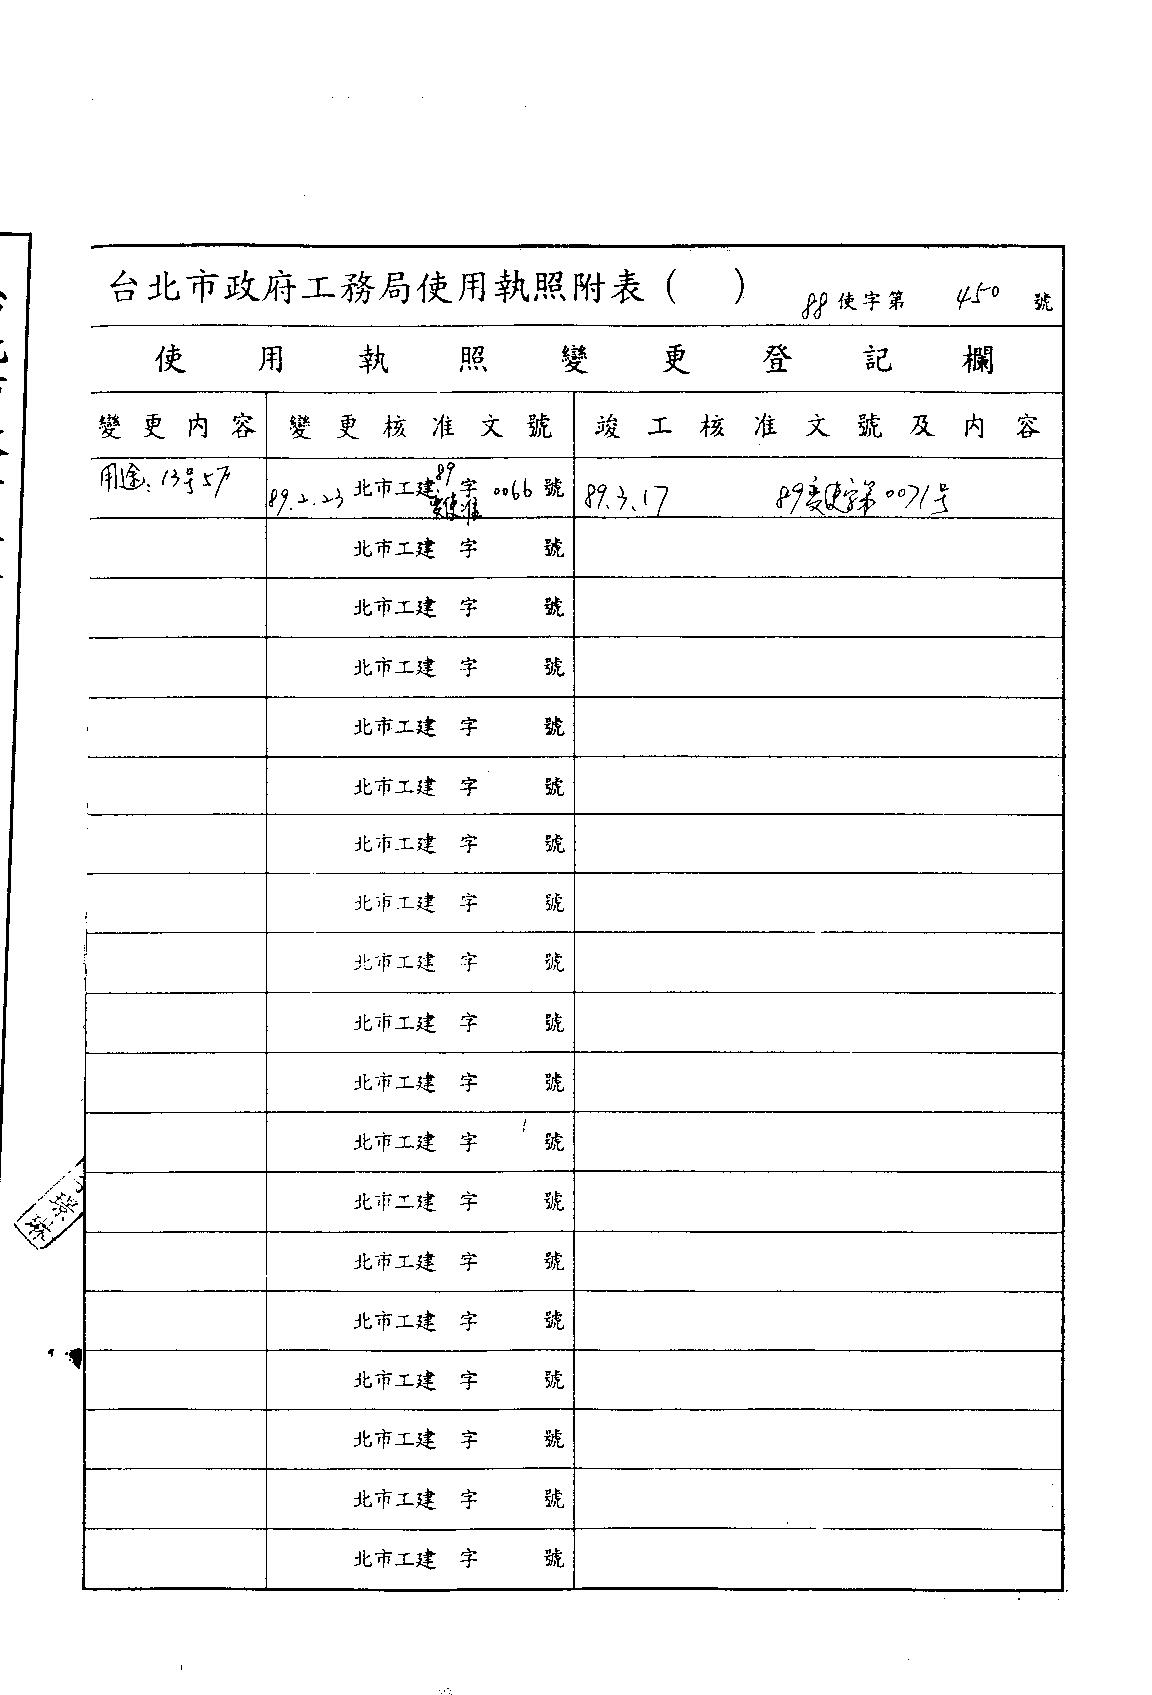 台北市政府工務局使用執照附表（　） 88使字第 450 號
使用執照變更登記欄
變更內容 變更核准文號 竣工核准文號及內容
用途:13号5F 89.2.23 北市工建 89 變使准 字 0066 號 89.3.17 89變使字第0071号
北市工建 字 號
北市工建 字 號
北市工建 字 號
北市工建 字 號
北市工建 字 號
北市工建 字 號
北市工建 字 號
北市工建 字 號
北市工建 字 號
北市工建 字 號
北市工建 字 號
北市工建 字 號
璟琳
北市工建 字 號
北市工建 字 號
北市工建 字 號
北市工建 字 號
北市工建 字 號
北市工建 字 號